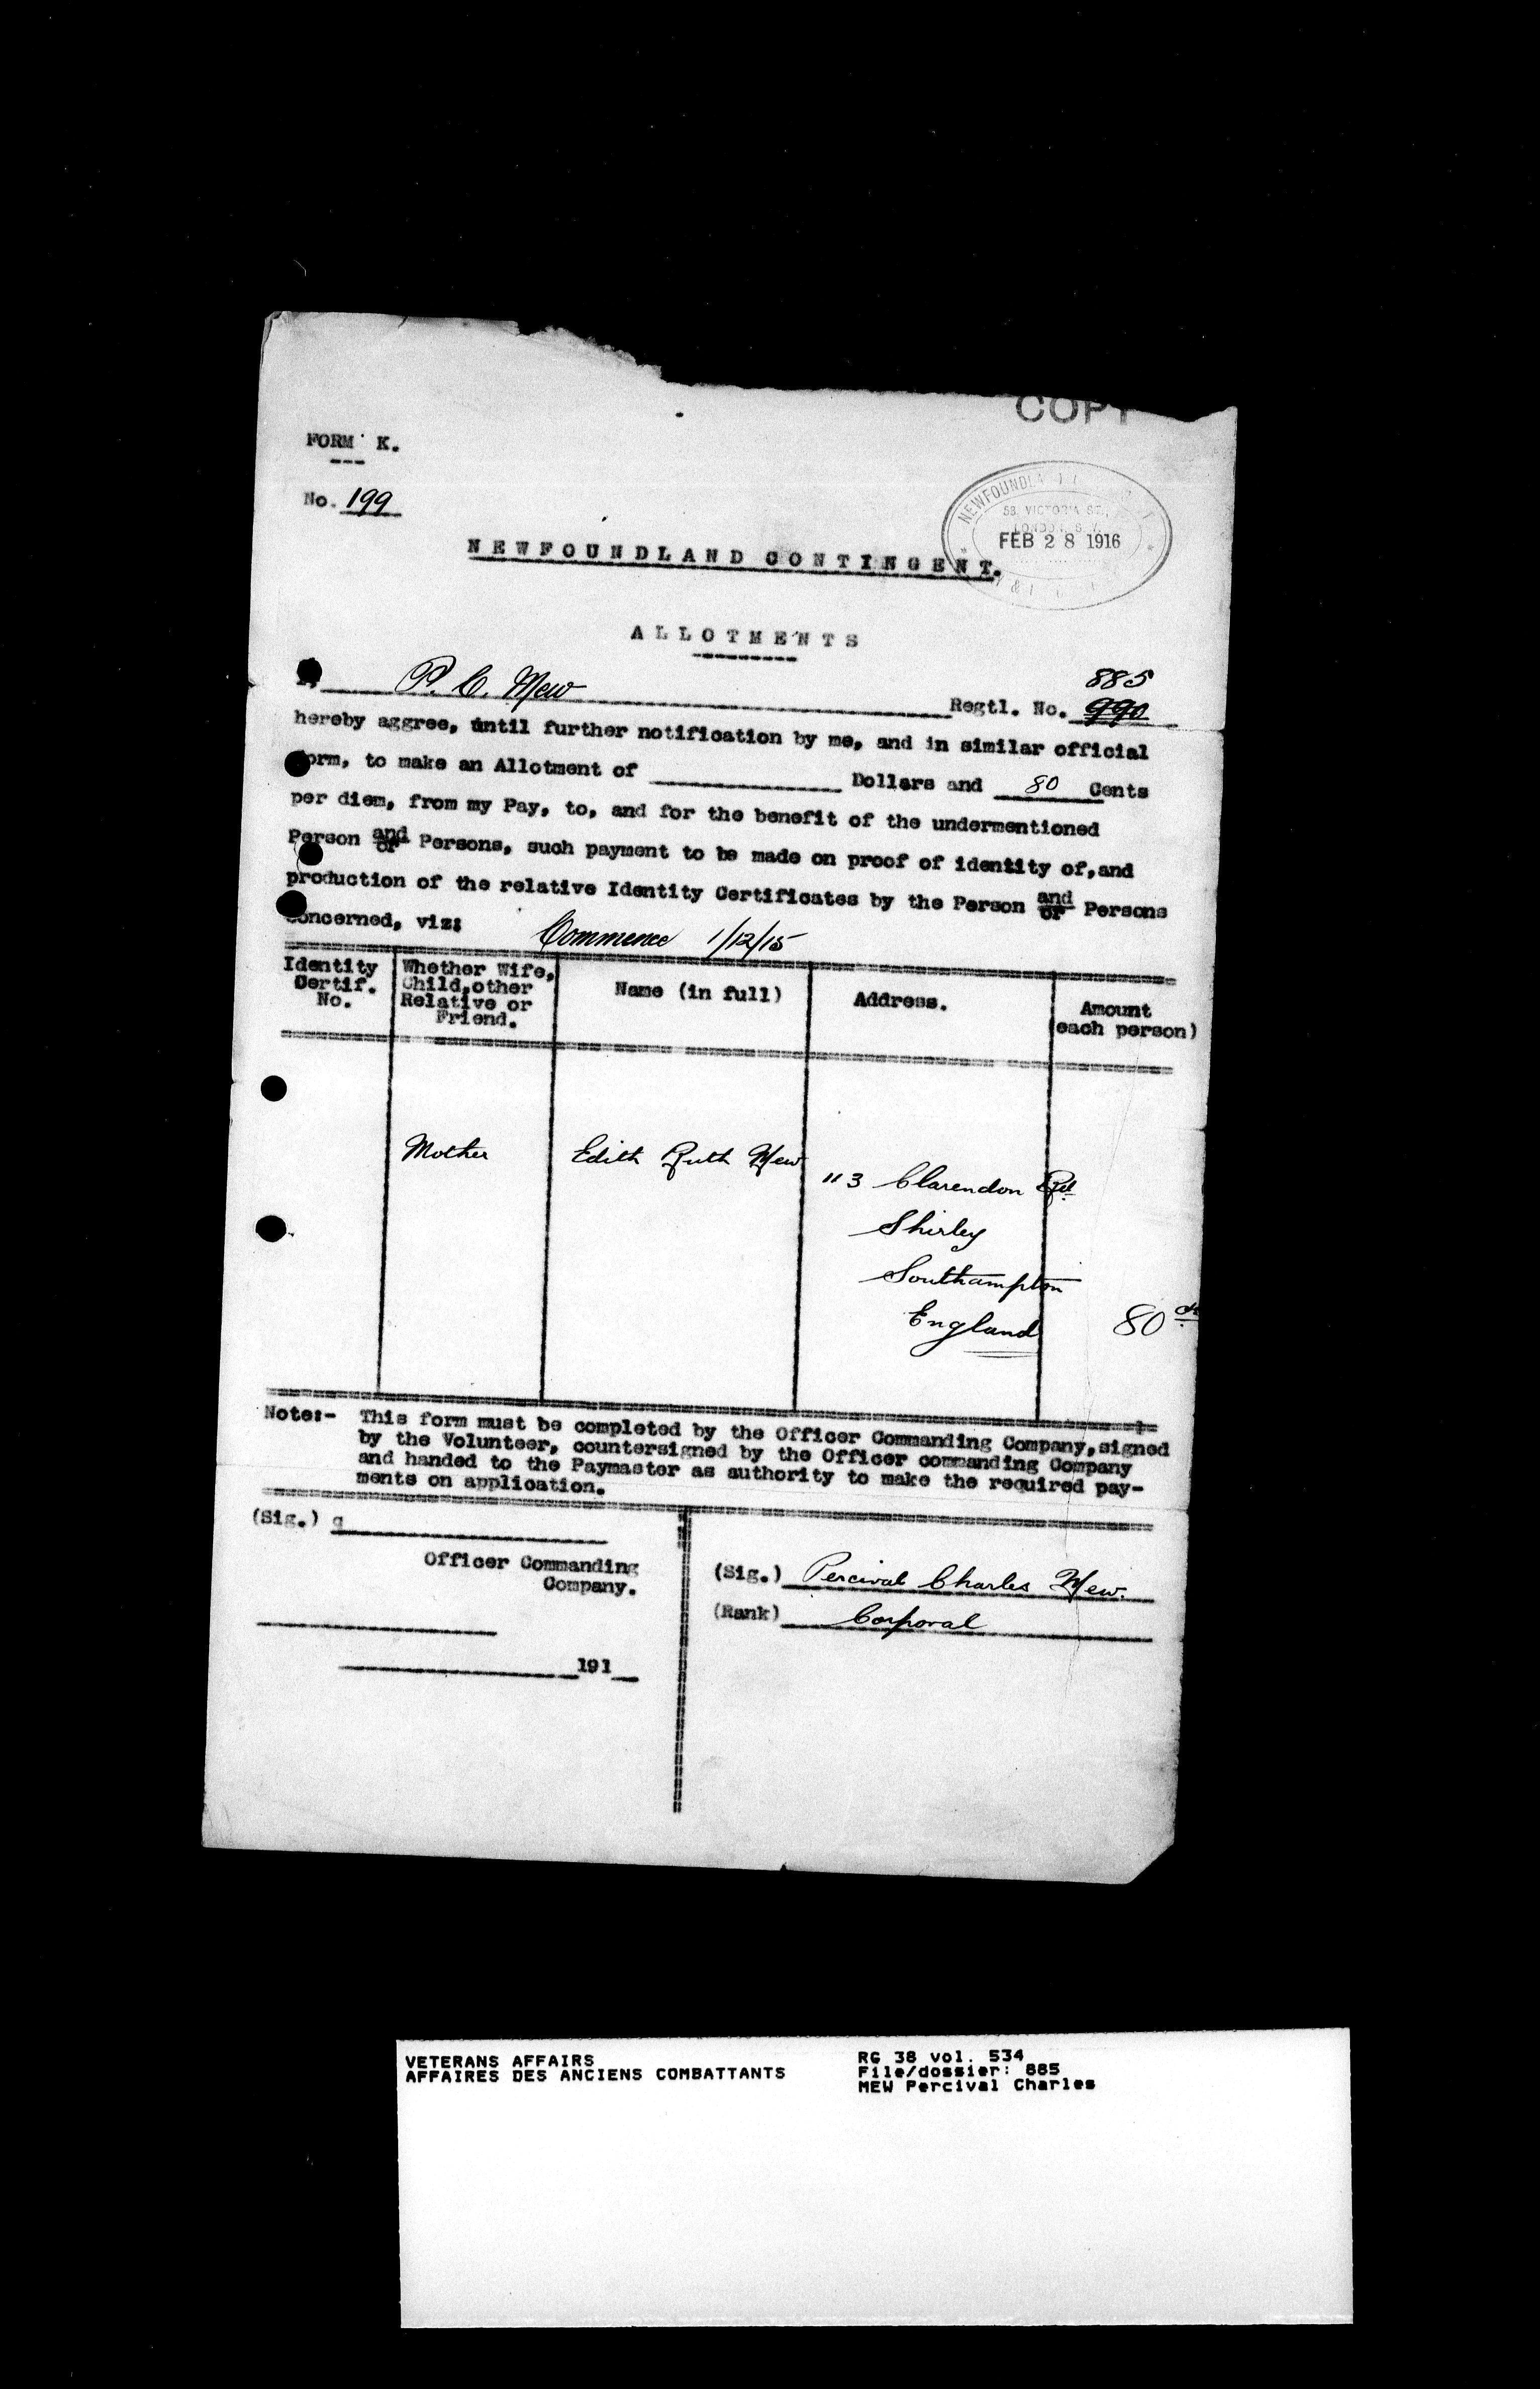 COPY
FORM K.
No. 199
NEWFOUNDL
58, VICTORIA ST.,
LONDON, S.W.
FEB 28 1916
NEWFOUNDLAND CONTINGENT.
ALLOTMENTS
I, P. C. Mew 885
Regtl. No. 990
hereby aggree, until further notification by me, and in similar official
form, to make an Allotment of Dollars and 80 Cents
per diem, from my Pay, to, and for the benefit of the undermentioned
Person and or Persons, such payment to be made on proof of identity of, and
production of the relative Identity Certificates by the Person and or Persons
concerned, viz: Commence 1/12/15
Identity Certif. No.
Whether Wife, Child, other Relative or Friend.
Name (in full)
Address.
Amount (each person)
Mother
Edith Ruth Mew
113 Clarendon Rd
Shirley
Southampton
England
80 cts
Note:- This form must be completed by the Officer Commanding Company, signed
by the Volunteer, countersigned by the Officer commanding Company
and handed to the Paymaster as authority to make the required pay-
ments on application.
(Sig.)
Officer Commanding
Company.
191
(Sig.) Percival Charles Mew.
(Rank) Corporal
VETERANS AFFAIRS
AFFAIRES DES ANCIENS COMBATTANTS
RG 38 vol. 534
File/dossier: 885
MEW Percival Charles